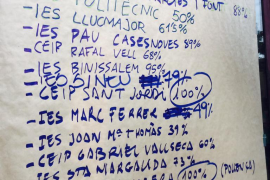 I FONT 88%
POLITÈCNIC 50%
-IES LLUCMAJOR 61'5%
-IES PAU CASESNOVES 89%
-CEIP RAFAL VELL 68%
-IES BINISSALEM 95%
-IES SINEU 19%
-CEIP SANT JORDI 100%
-IES MARC FERRER 49%
-IES JOAN Mª THOMÀS 39%
-CEIP GABRIEL VALLSECA 60%
-IES STA MARGALIDA 73%
100% (POLLENÇA)